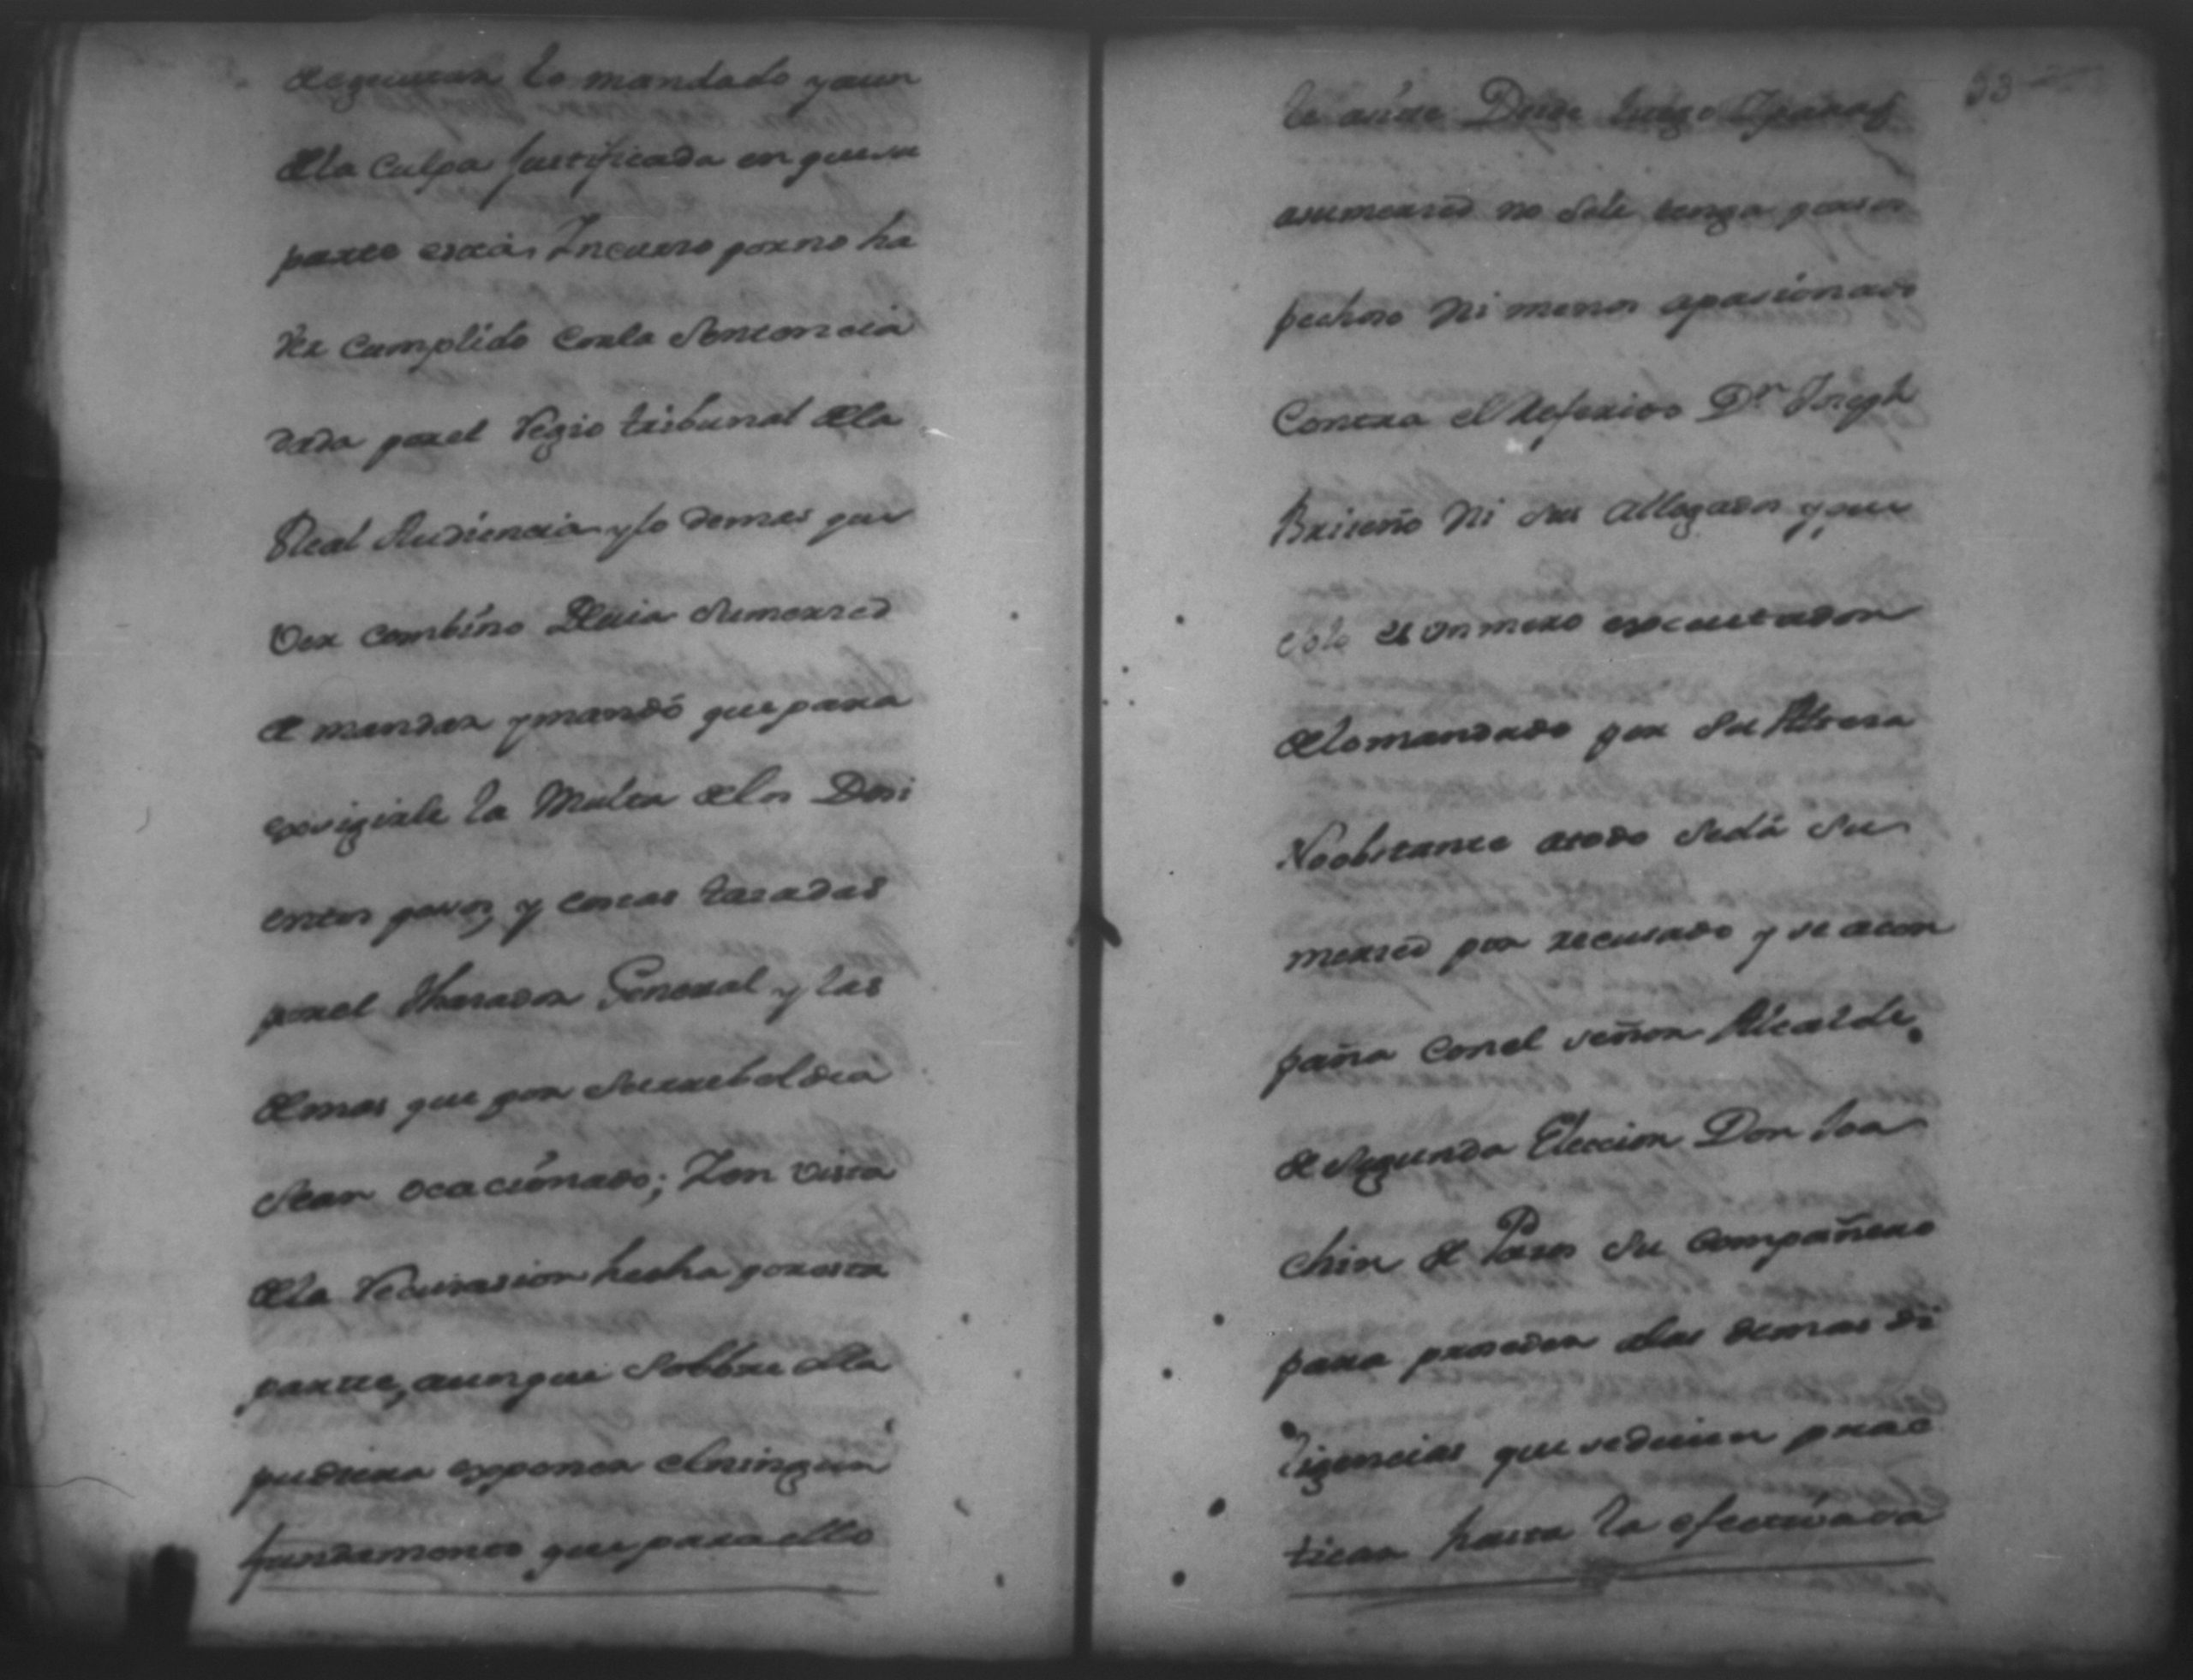 lo mandado y aun
de la culpa justificada en que su
parte está Incurso por no ha
ver cumplido con la Sentencia
dada por el Regio tribunal de la
Real Audiencia y lo demas que
Ver combíno Devia Sumerced
de mandar y mandó que para
exsigirle la Multa de los Dosi
entos pesos, y costas tasadas
por el thasador General y las
demas que por Su rrebeldia
Sean ocacíonado; Y en vista
de la Recusasion hecha por esta
parte, aunque Sobbre ella
pudiera exponer el ningun
fundamento que para ello
53
le asiste Desde luego Y para q
asumerced no Sele tenga por sos
pechoso Ni menos apasíonado
Contra el Referido Dr Joseph
Briseño Ni sus allegados y que
Solo es Un mero execcutador
de lo mandado por Su Alteza
No obstante atodo Sedá Su
merced por recusado y se acom
paña con el señor Alcalde
de Segunda Eleccion Don Joa
chin de Pasos Su Compañero
para proseder a las demas di
ligencias que se devien prac
ticar hasta la efectíva